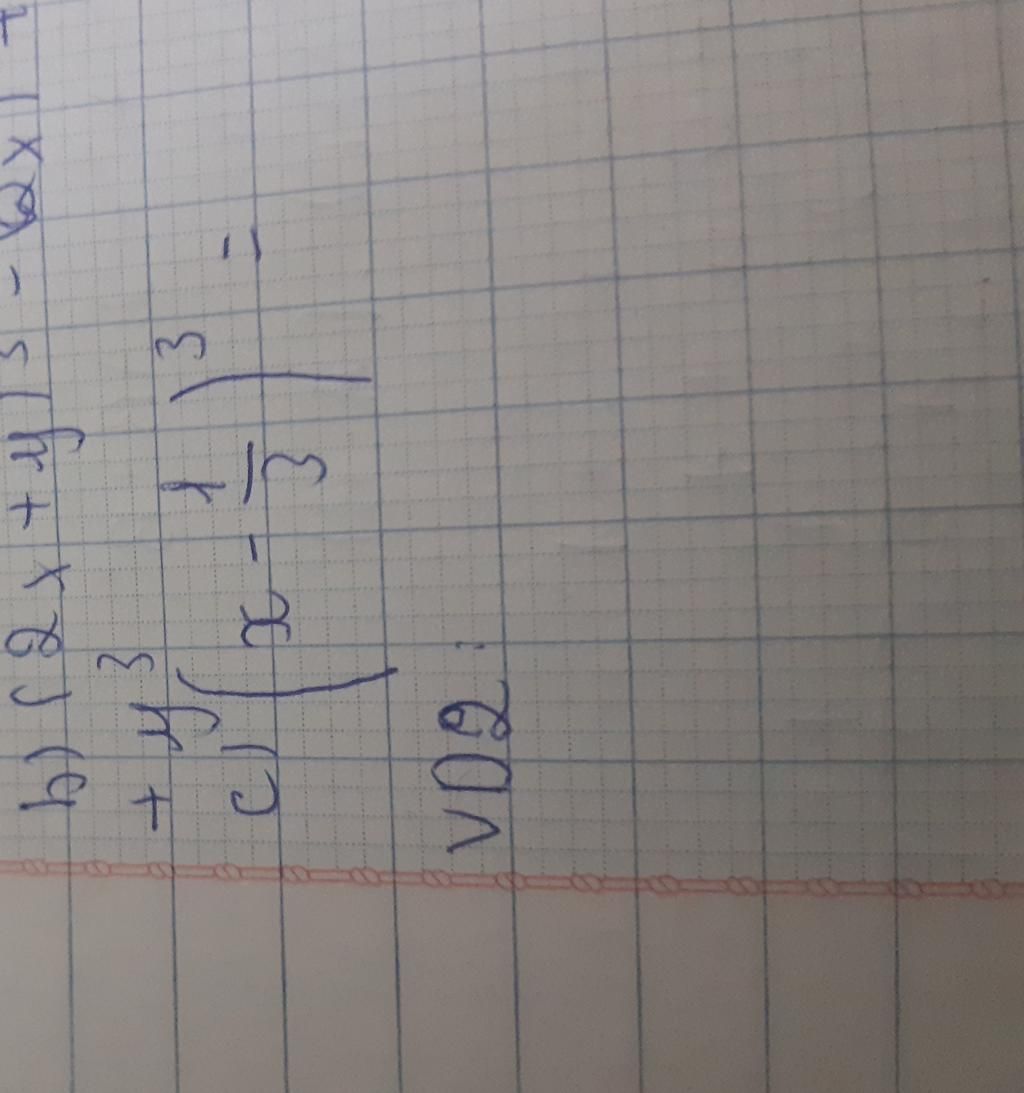 b) (2x + y)³ - (2x)
+ y³
c) (x - 1/3)³ =
VD2: